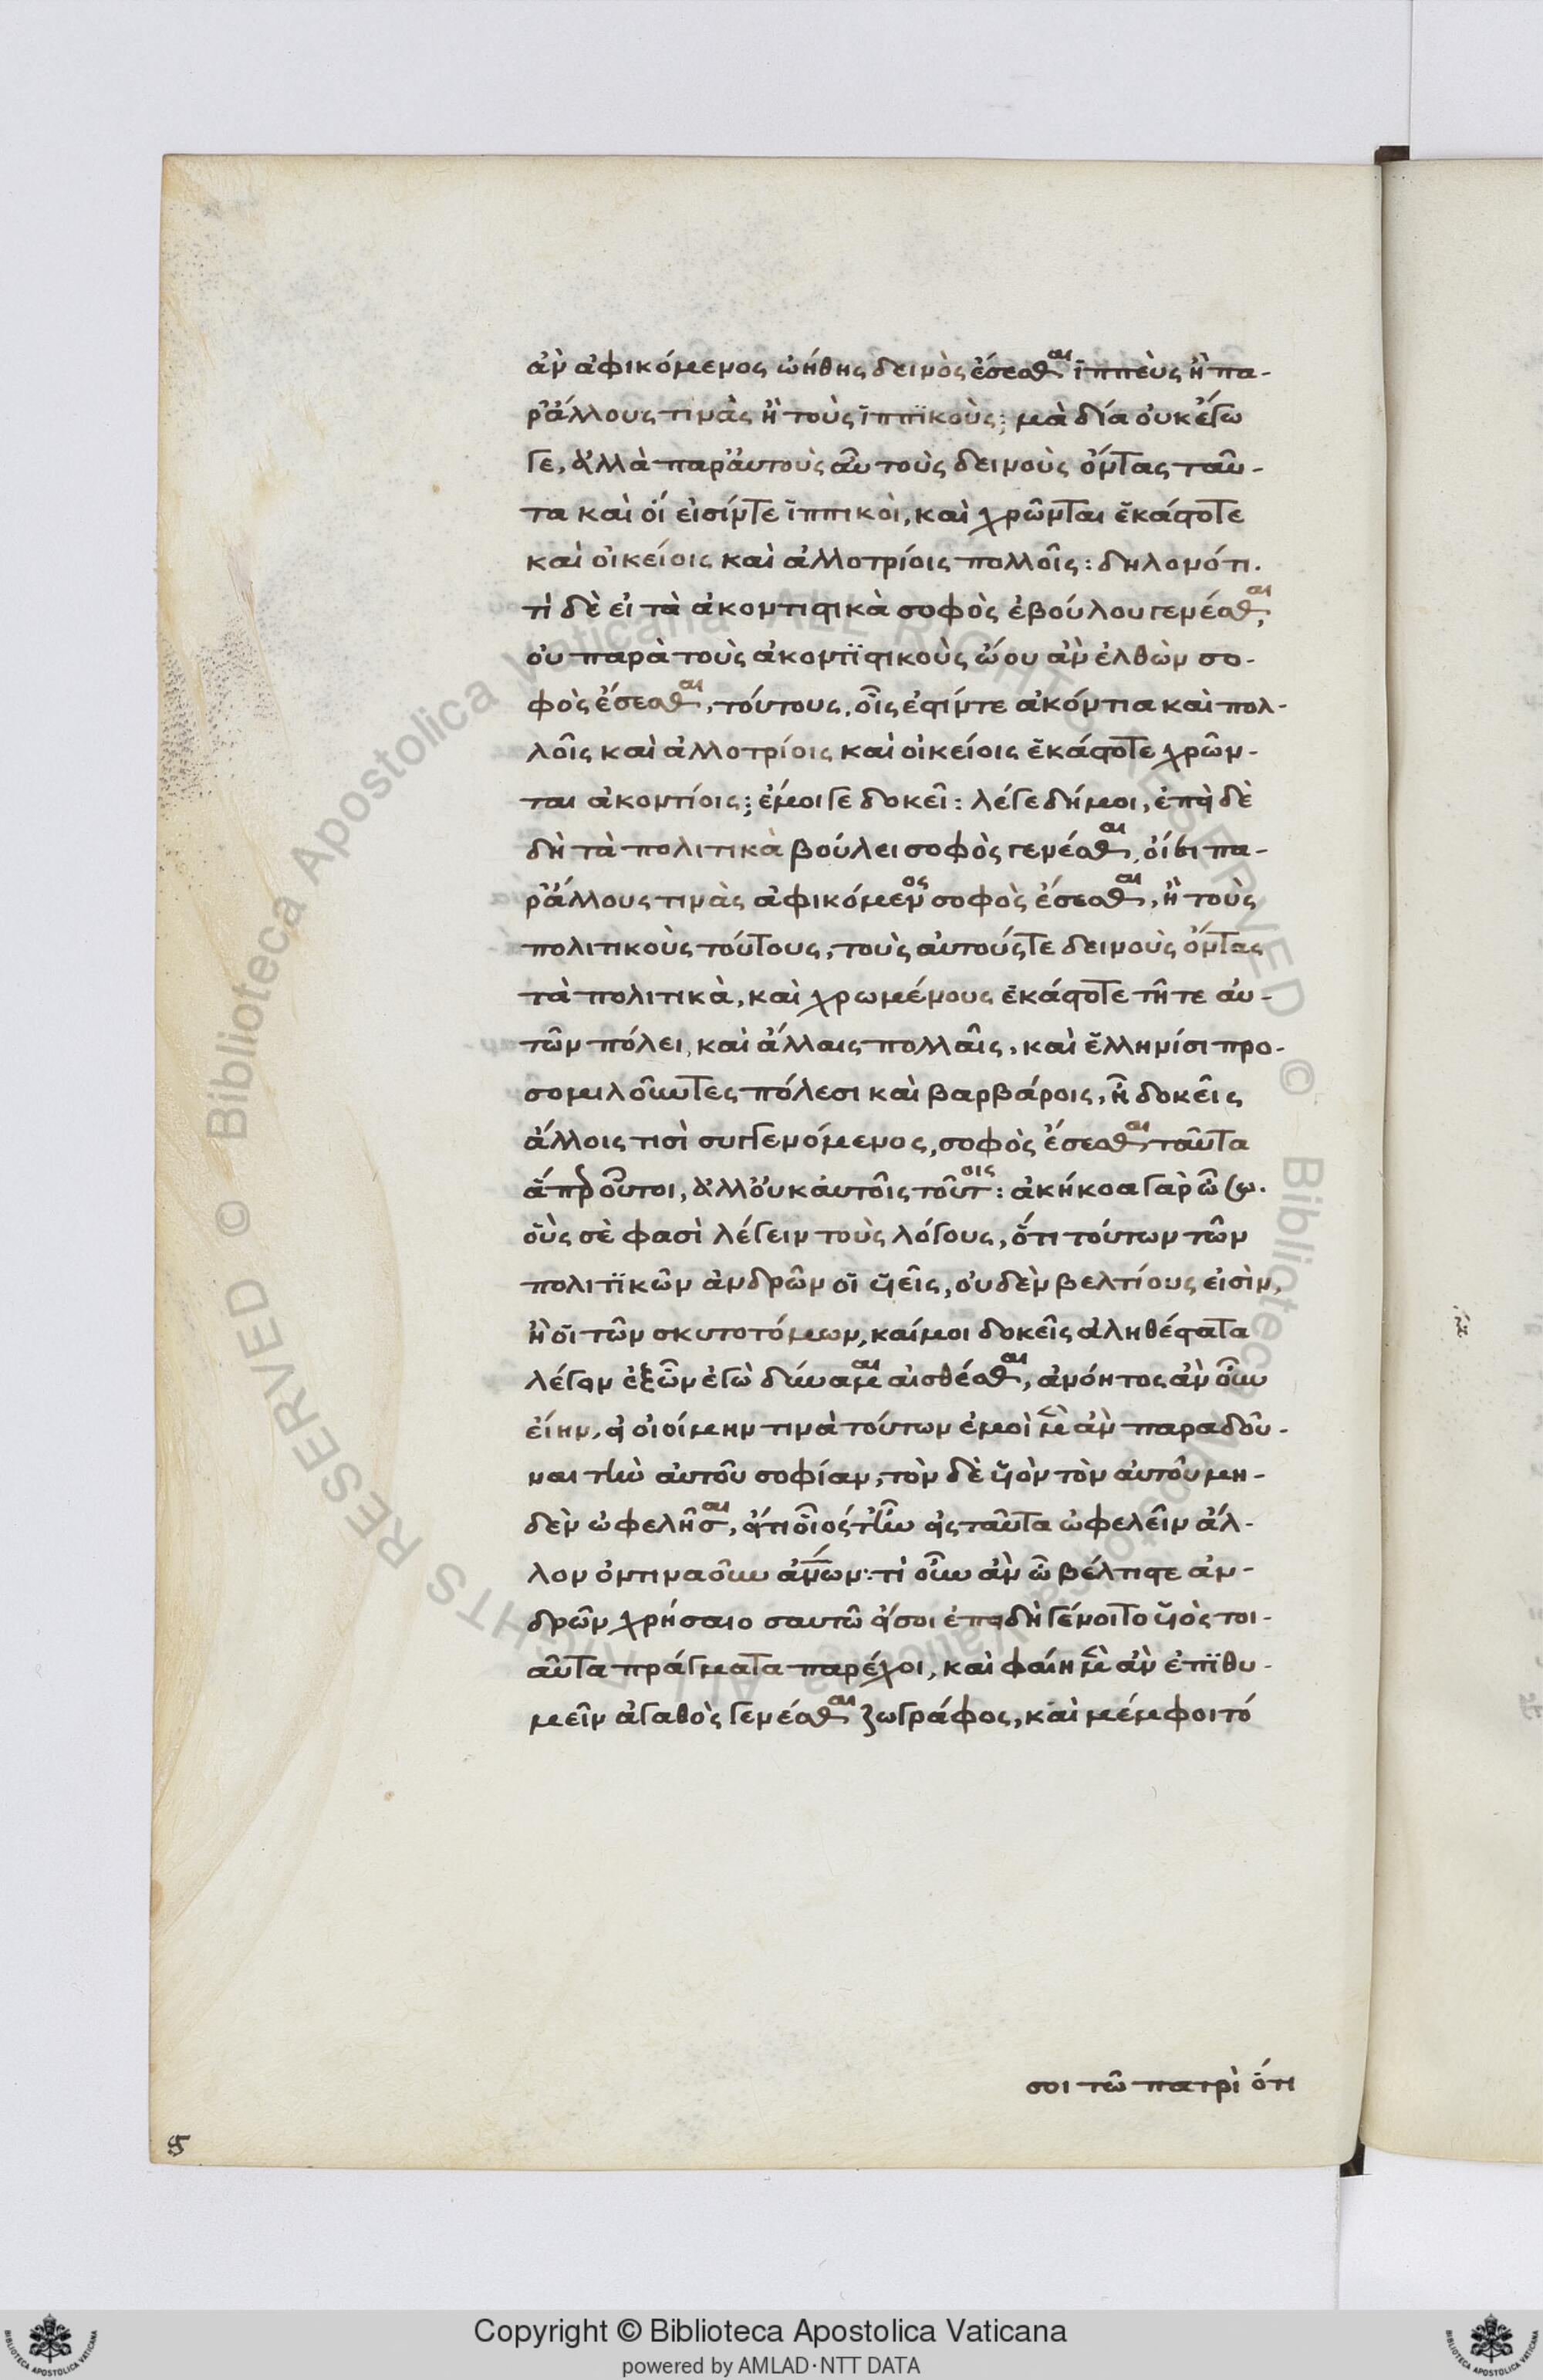 ἀν ἀφικόμενος ὠήθης δεινὸς ἔσεσθαι ἱππεὺς ἢ πα-
ρ' ἄλλους τινὰς ἢ τοὺς ἱππικοὺς; μὰ δία οὐκ ἔγω
γε, ἀλλὰ παρ' αὐτοὺς αὖ τοὺς δεινοὺς ὄντας ταῦ-
τα καὶ οἵ εἰσίν τε ἱππικοὶ, καὶ χρῶνται ἑκάστοτε
καὶ οἰκείοις καὶ ἀλλοτρίοις πολλοῖς: δηλονότι.
τί δὲ εἰ τὰ ἀκοντιστικὰ σοφὸς ἐβούλου γενέσθαι;
οὐ παρὰ τοὺς ἀκοντϊστικοὺς ᾤου ἀν ἐλθὼν σο-
φὸς ἔσεσθαι, τούτους, οἷς ἐστίν τε ἀκόντια καὶ πολ-
λοῖς καὶ ἀλλοτρίοις καὶ οἰκείοις ἑκάστοτε χρῶν-
ται ἀκοντίοις; ἔμοιγε δοκεῖ: λέγε δή μοι, ἐπεὶ δὲ
δὴ τὰ πολιτικὰ βούλει σοφὸς γενέσθαι, οἴει πα-
ρ' ἄλλους τινὰς ἀφικόμενος σοφὸς ἔσεσθαι, ἢ τοὺς
πολιτικοὺς τούτους, τοὺς αὐτούς τε δεινοὺς ὄντας
τὰ πολιτικὰ, καὶ χρωμένους ἑκάστοτε τῆ τε αὐ-
τῶν πόλει, καὶ ἄλλαις πολλαῖς, καὶ ἑλληνίσι προ-
σομιλοῦντες πόλεσι καὶ βαρβάροις, ἢ δοκεῖς
ἄλλοις τισὶ συγγενόμενος, σοφὸς ἔσεσθαι ταῦτα
ἅπερ οὗτοι, ἀλλ' οὐκ αὐτοῖς τούτοις: ἀκήκοα γὰρ ὦ σώ.
οὓς σὲ φασὶ λέγειν τοὺς λόγους, ὅτι τούτων τῶν
πολιτϊκῶν ἀνδρῶν οἱ υἱεῖς, οὐδὲν βελτίους εἰσὶν,
ἢ οἱ τῶν σκυτοτόμων, καί μοι δοκεῖς ἀληθέστατα
λέγειν ἐξ ὧν ἐγὼ δύναμαι αἰσθέσθαι, ἀνόητος ἀν οὖν
εἴην, εἰ οἰοίμην τινὰ τούτων ἐμοὶ μὲν ἀν παραδοῦ-
ναι τὴν αὐτοῦ σοφίαν, τὸν δὲ υἱὸν τὸν αὐτοῦ μη-
δὲν ὠφελῆσαι, εἴ τι οἷός τ' ἦν εἰς ταῦτα ὠφελεῖν ἄλ-
λον ὁντιναοῦν ἀνθρώπων: τί οὖν ἀν ὦ βέλτιστε ἀν-
δρῶν χρήσαιο σαυτῶ εἴ σοι ἐπειδὴ γένοιτο υἱὸς τοι-
αῦτα πράγματα παρέχοι, καὶ φαίη μὲν ἀν ἐπϊθυ-
μεῖν ἀγαθὸς γενέσθαι ζωγράφος, καὶ μέμφοιτό
σοι τῶ πατρὶ ὅτι
Copyright © Biblioteca Apostolica Vaticana
powered by AMLAD·NTT DATA